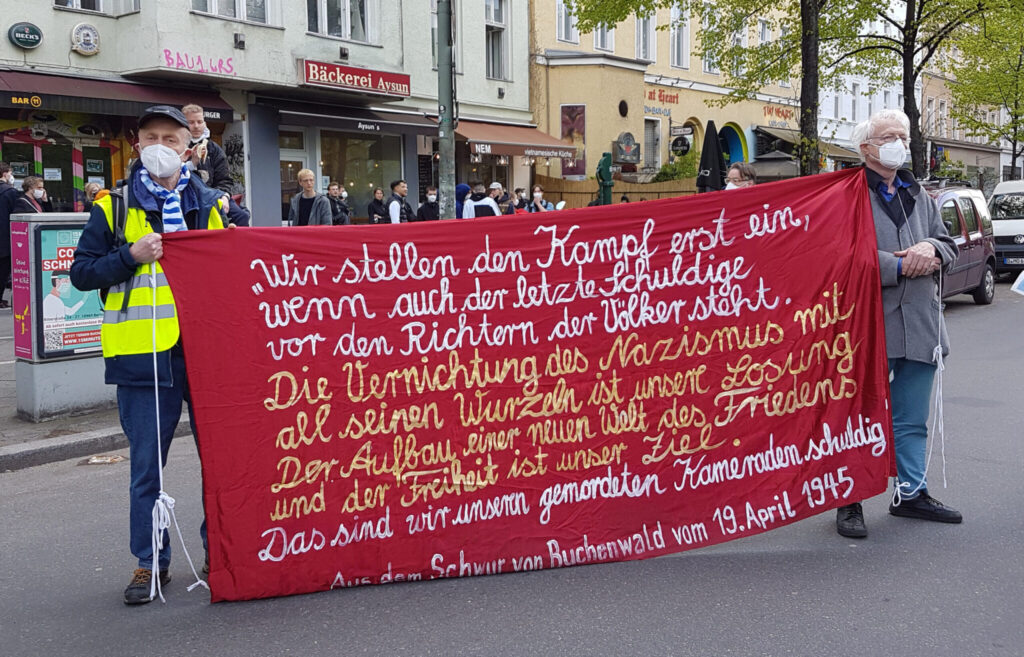 BECK'S
BAU J URS
Bäckerei Aysun
BAR 11
BURGER
Aysun's
NEM
vietnamesische Küche
at Heart
„Wir stellen den Kampf erst ein,
wenn auch der letzte Schuldige
vor den Richtern der Völker steht.
Die Vernichtung des Nazismus mit
all seinen Wurzeln ist unsere Losung
Der Aufbau einer neuen Welt des Friedens
und der Freiheit ist unser Ziel.
Das sind wir unsern gemordeten Kameraden schuldig
Aus dem Schwur von Buchenwald vom 19. April 1945